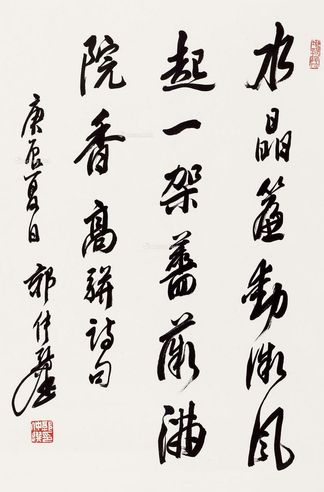 水晶簾動微風
起一架薔薇滿
院香高駢詩句
庚辰夏日郭仲選